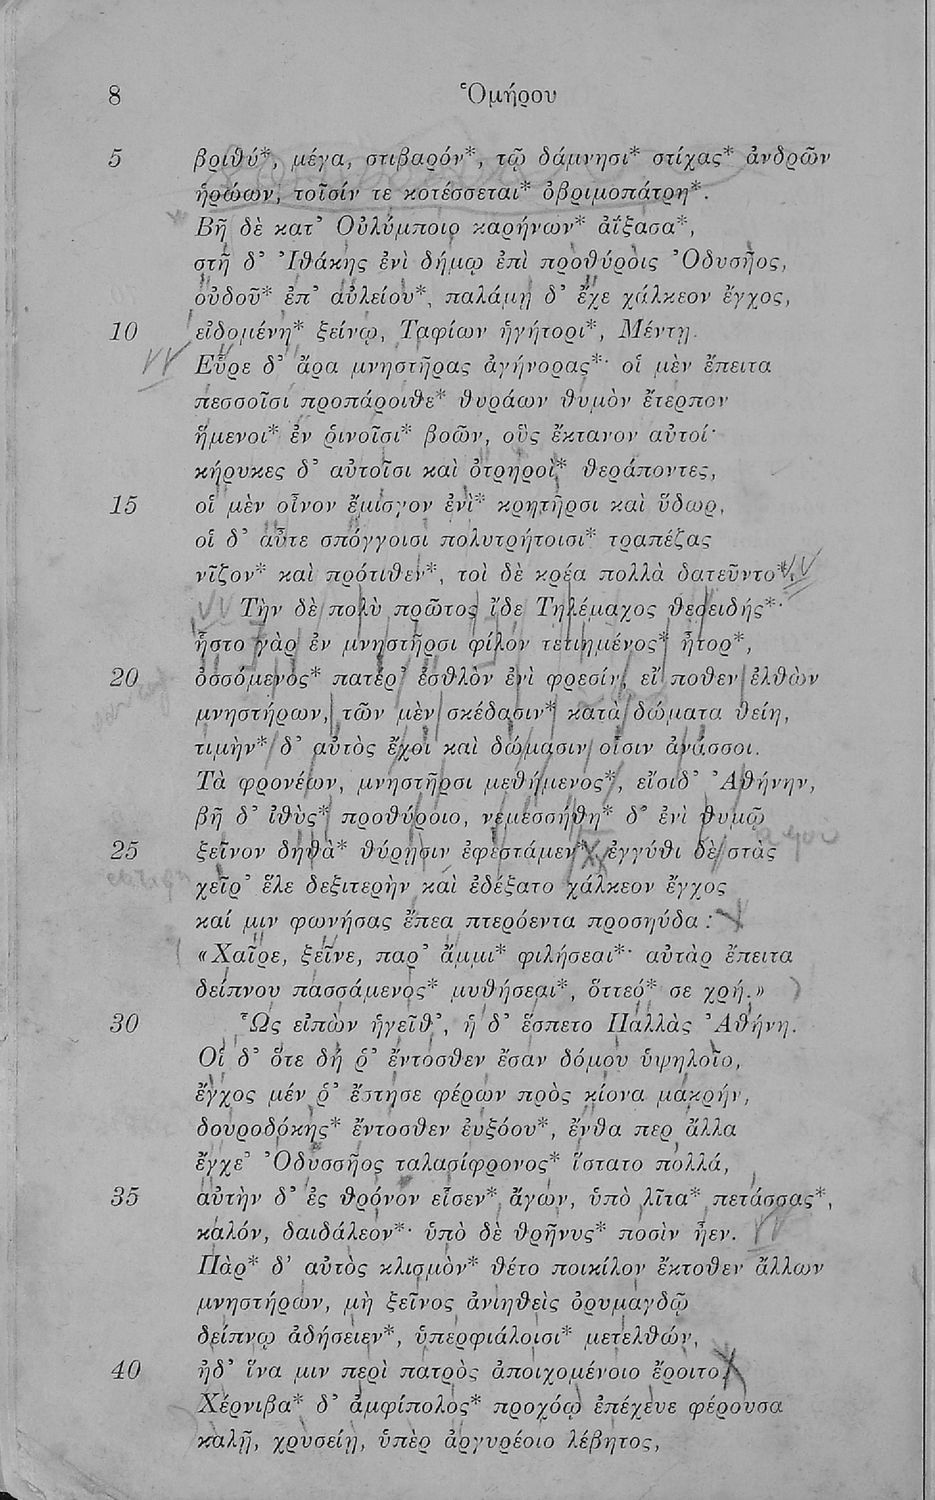 8 Ὁμήρου
5 βριθύ*, μέγα, στιβαρόν*, τῷ δάμνησι* στίχας* ἀνδρῶν
ἡρώων, τοῖσίν τε κοτέσσεται* ὀβριμοπάτρη*.
Βῆ δὲ κατ' Οὐλύμποιο καρήνων* ἀΐξασα*,
στῆ δ' Ἰθάκης ἐνὶ δήμῳ ἐπὶ προθύροις Ὀδυσῆος,
οὐδοῦ* ἐπ' αὐλείου*, παλάμῃ δ' ἔχε χάλκεον ἔγχος,
10 εἰδομένη* ξείνῳ, Ταφίων ἡγήτορι*, Μέντῃ.
Εὗρε δ' ἄρα μνηστῆρας ἀγήνορας*· οἱ μὲν ἔπειτα
πεσσοῖσι προπάροιθε* θυράων θυμὸν ἔτερπον
ἥμενοι* ἐν ῥινοῖσι* βοῶν, οὓς ἔκτανον αὐτοί·
κήρυκες δ' αὐτοῖσι καὶ ὀτρηροὶ* θεράποντες,
15 οἱ μὲν οἶνον ἔμισγον ἐνὶ* κρητῆρσι καὶ ὕδωρ,
οἱ δ' αὖτε σπόγγοισι πολυτρήτοισι* τραπέζας
νῖζον* καὶ πρότιθεν*, τοὶ δὲ κρέα πολλὰ δατεῦντο*.
Τὴν δὲ πολὺ πρῶτος ἴδε Τηλέμαχος θεοειδής*·
ἧστο γὰρ ἐν μνηστῆρσι φίλον τετιημένος* ἦτορ*,
20 ὀσσόμενος* πατέρ' ἐσθλὸν ἐνὶ φρεσίν, εἴ ποθεν ἐλθὼν
μνηστήρων, τῶν μὲν σκέδασιν* κατὰ δώματα θείη,
τιμὴν* δ' αὐτὸς ἔχοι καὶ δώμασιν οἷσιν ἀνάσσοι.
Τὰ φρονέων, μνηστῆρσι μεθήμενος*, εἴσιδ' Ἀθήνην,
βῆ δ' ἰθὺς* προθύροιο, νεμεσσήθη* δ' ἐνὶ θυμῷ
25 ξεῖνον δηθὰ* θύρῃσιν ἐφεστάμεν*, ἐγγύθι δὲ στὰς
χεῖρ' ἕλε δεξιτερὴν καὶ ἐδέξατο χάλκεον ἔγχος
καί μιν φωνήσας ἔπεα πτερόεντα προσηύδα :
«Χαῖρε, ξεῖνε, παρ' ἄμμι* φιλήσεαι*· αὐτὰρ ἔπειτα
δείπνου πασσάμενος* μυθήσεαι*, ὅττεό* σε χρή.»
30 Ὣς εἰπὼν ἡγεῖθ', ἡ δ' ἕσπετο Παλλὰς Ἀθήνη.
Οἱ δ' ὅτε δή ῥ' ἔντοσθεν ἔσαν δόμου ὑψηλοῖο,
ἔγχος μέν ῥ' ἔστησε φέρων πρὸς κίονα μακρήν,
δουροδόκης* ἔντοσθεν ἐυξόου*, ἔνθα περ ἄλλα
ἔγχε' Ὀδυσσῆος ταλασίφρονος* ἵστατο πολλά,
35 αὐτὴν δ' ἐς θρόνον εἷσεν* ἄγων, ὑπὸ λῖτα* πετάσσας*,
καλόν, δαιδάλεον*· ὑπὸ δὲ θρῆνυς* ποσὶν ἦεν.
Πὰρ* δ' αὐτὸς κλισμὸν* θέτο ποικίλον ἔκτοθεν ἄλλων
μνηστήρων, μὴ ξεῖνος ἀνιηθεὶς ὀρυμαγδῷ
δείπνῳ ἀδήσειεν*, ὑπερφιάλοισι* μετελθών,
40 ἠδ' ἵνα μιν περὶ πατρὸς ἀποιχομένοιο ἔροιτο.
Χέρνιβα* δ' ἀμφίπολος* προχόῳ ἐπέχευε φέρουσα
καλῇ, χρυσείῃ, ὑπὲρ ἀργυρέοιο λέβητος,